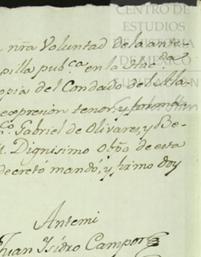 CENTRO DE
ESTUDIOS
nrã Voluntad de la ante-
pilla pub.ca en la
opia del Condado de
expresion tenor, y forma
Gabriel de Olivares, y Be-
Dignisimo Obpo de esta
decretó mandó, y firmo doy
Antemi
Juan Isidro Campos